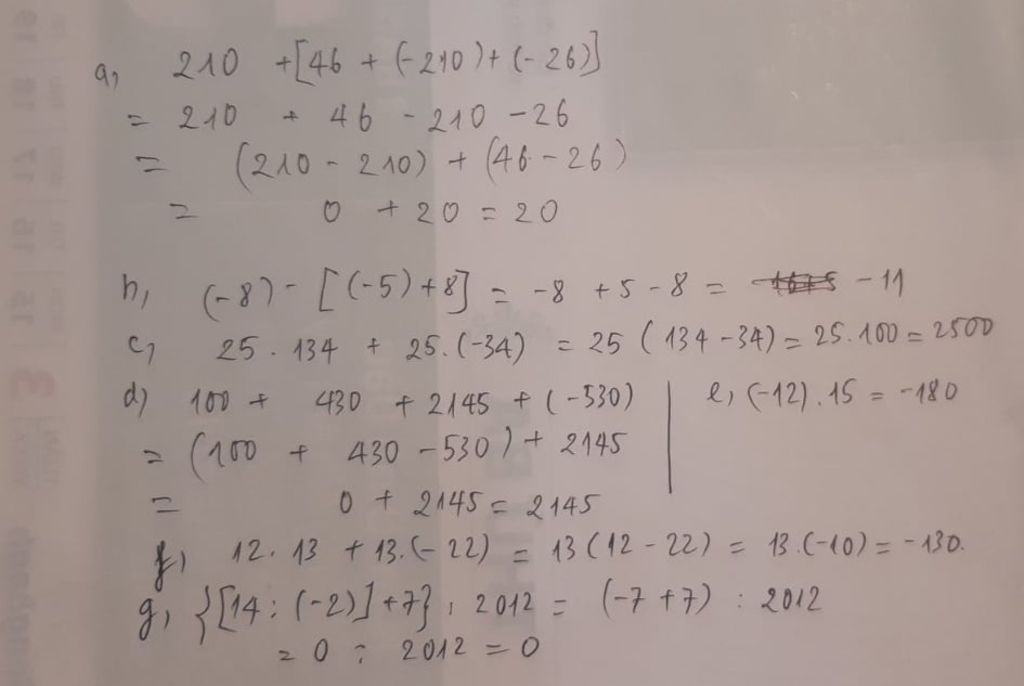 a, 210 +[46 + (-210)+ (-26)]
= 210 + 46 - 210 - 26
= (210 - 210) + (46 - 26)
= 0 + 20 = 20
b, (-8) - [(-5)+8] = -8 +5 -8 = -11
c, 25 . 134 + 25.(-34) = 25 (134 -34) = 25.100 = 2500
d) 100 + 430 + 2145 + (-530)
= (100 + 430 - 530) + 2145
= 0 + 2145 = 2145
e, (-12).15 = -180
f) 12. 13 + 13.(- 22) = 13 (12 - 22) = 13.(-10) = -130.
g, {[14 : (-2)] +7} : 2012 = (-7 +7) : 2012
= 0 : 2012 = 0